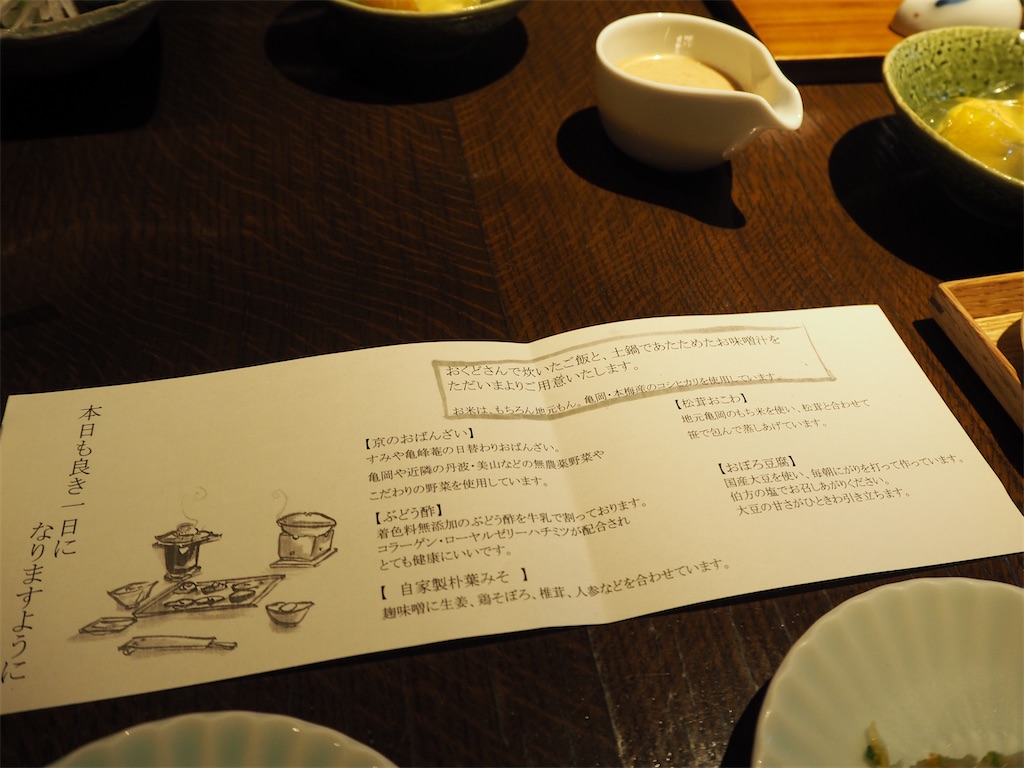 本日も良き一日に
なりますように
おくどさんで炊いたご飯と、土鍋であたためたお味噌汁を
ただいまよりご用意いたします。
お米は、もちろん地元もん。亀岡・本梅産のコシヒカリを使用しています。
【京のおばんざい】
すみや亀峰菴の日替わりおばんざい。
亀岡や近隣の丹波・美山などの無農薬野菜や
こだわりの野菜を使用しています。
【ぶどう酢】
着色料無添加のぶどう酢を牛乳で割っております。
コラーゲン・ローヤルゼリーハチミツが配合され
とても健康にいいです。
【 自家製朴葉みそ 】
麹味噌に生姜、鶏そぼろ、椎茸、人参などを合わせています。
【松茸おこわ】
地元亀岡のもち米を使い、松茸と合わせて
笹で包んで蒸しあげています。
【おぼろ豆腐】
国産大豆を使い、毎朝にがりを打って作っています。
伯方の塩でお召しあがりください。
大豆の甘さがひときわ引き立ちます。